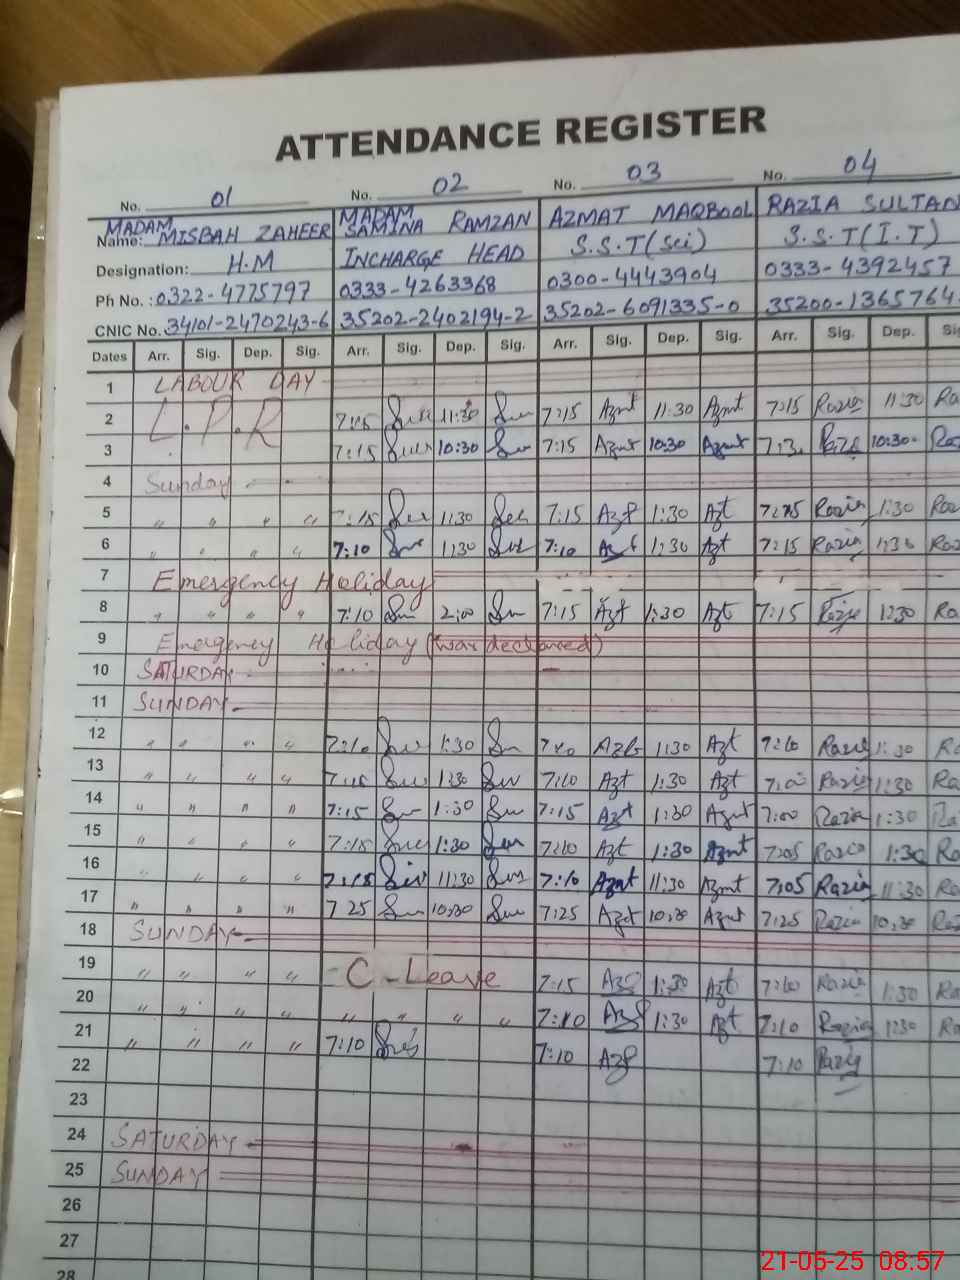 ATTENDANCE REGISTER
No. 01 No. 02 No. 03 No. 04
Name: MADAM MISBAH ZAHEER MADAM SAMINA RAMZAN AZMAT MAQBOOL RAZIA SULTAN
Designation: H.M INCHARGE HEAD S.S.T(Sci) S.S.T(I.T)
Ph No. : 0322-4775797 0333-4263368 0300-4443904 0333-4392457
CNIC No. 34101-2470243-6 35202-2402194-2 35202-6091335-0 35200-1365764-
Dates Arr. Sig. Dep. Sig. Arr. Sig. Dep. Sig. Arr. Sig. Dep. Sig. Arr. Sig. Dep. Sig
1 LABOUR DAY
2 L.P.R 7:15 11:30 7:15 Azmt 11:30 Azmt 7:15 Razia 11:30 Ra
3 7:15 10:30 7:15 Azmt 10:30 Azmt 10:30
4 Sunday
5 " " " " 7:15 1:30 7:15 Azt 1:30 Azt Razia 1:30
6 " " " " 7:10 1:30 7:10 Azt 1:30 Azt 7:15 Razia 1:30
7 Emergency Holiday
8 " " " " 7:10 2:00 7:15 Azt 1:30 Azt 7:15 Razia 1:30 Ra
9 Emergency Holiday (war declared)
10 SATURDAY
11 SUNDAY
12 " " " " 7:10 1:30 7:10 1:30 Azt 7:10 Razia 1:30
13 " " " " 7:15 1:30 7:10 Azt 1:30 Azt 7:00 Razia 1:30
14 " " " " 7:15 1:30 7:15 Azt 1:30 Azmt 7:00 Razia 1:30
15 " " " " 7:15 1:30 7:10 Azt 1:30 Azmt 7:05 Razia 1:30
16 " " " " 7:15 11:30 7:10 Azmt 11:30 Azmt 7:05 Razia 11:30 Ra
17 " " " " 7:25 10:30 7:25 Azt 10:30 Azmt 7:25 Razia 10:30 Ra
18 SUNDAY
19 " " " " C-Leave 7:15 Azt 1:30 Azt 7:10 Razia 1:30 Ra
20 " " " " " " " " 7:10 Azt 1:30 Azt 7:10 Razia 1:30 Ra
21 " " " " 7:10 7:10 Azt 7:10 Razia
22
23
24 SATURDAY
25 SUNDAY
26
27
28
21-05-25 08:57